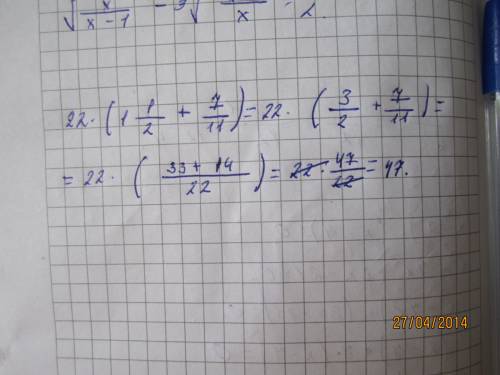 √x/(x-1) - 3√ /x = 2.
22·(1 1/2 + 7/11) = 22·(3/2 + 7/11) =
= 22·((33+14)/22) = 22·47/22 = 47.
27/04/2014